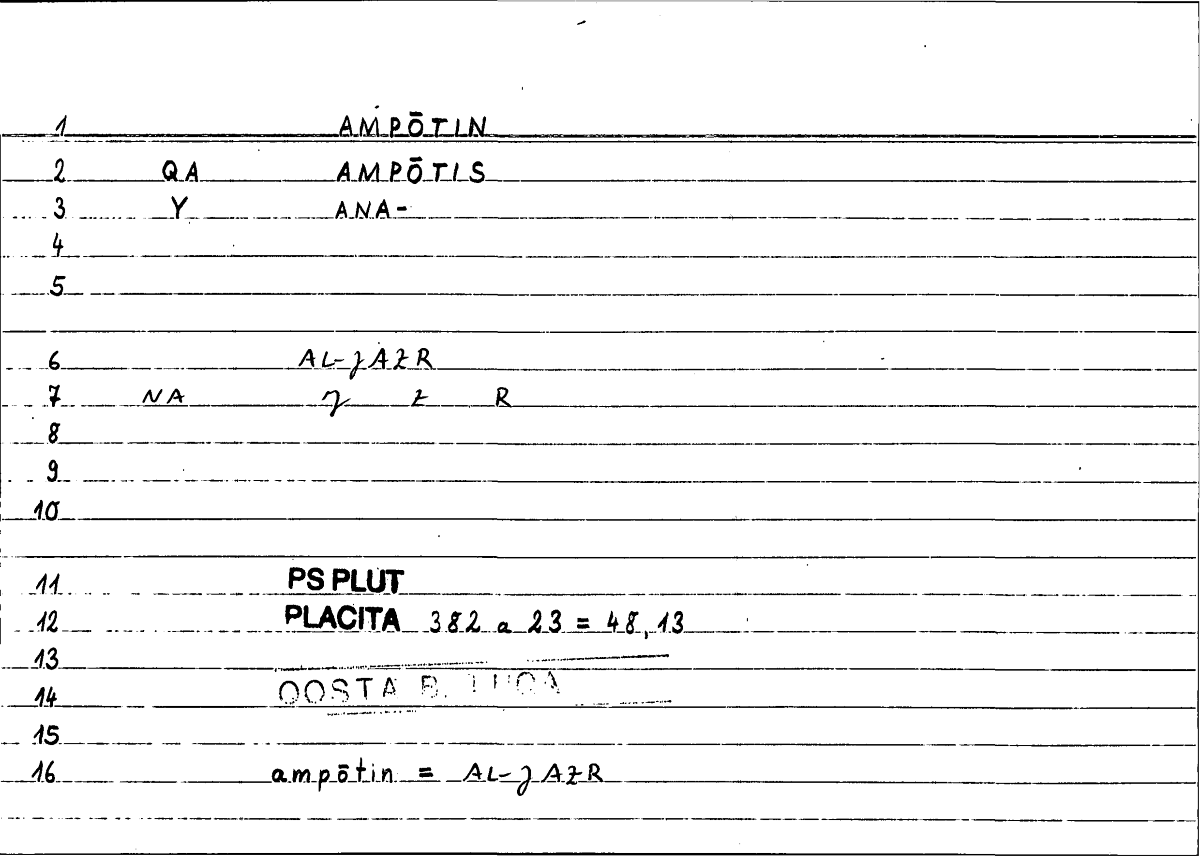 1 AMPŌTIN
2 QA AMPŌTIS
3 Y ANA-
4
5
6 AL-ȷAZR
7 NA ȷ z R
8
9
10
11 PS PLUT
12 PLACITA 382 a 23 = 48,13
13
14 QOSTA B. LUQA
15
16 ampōtin = AL-ȷAZR